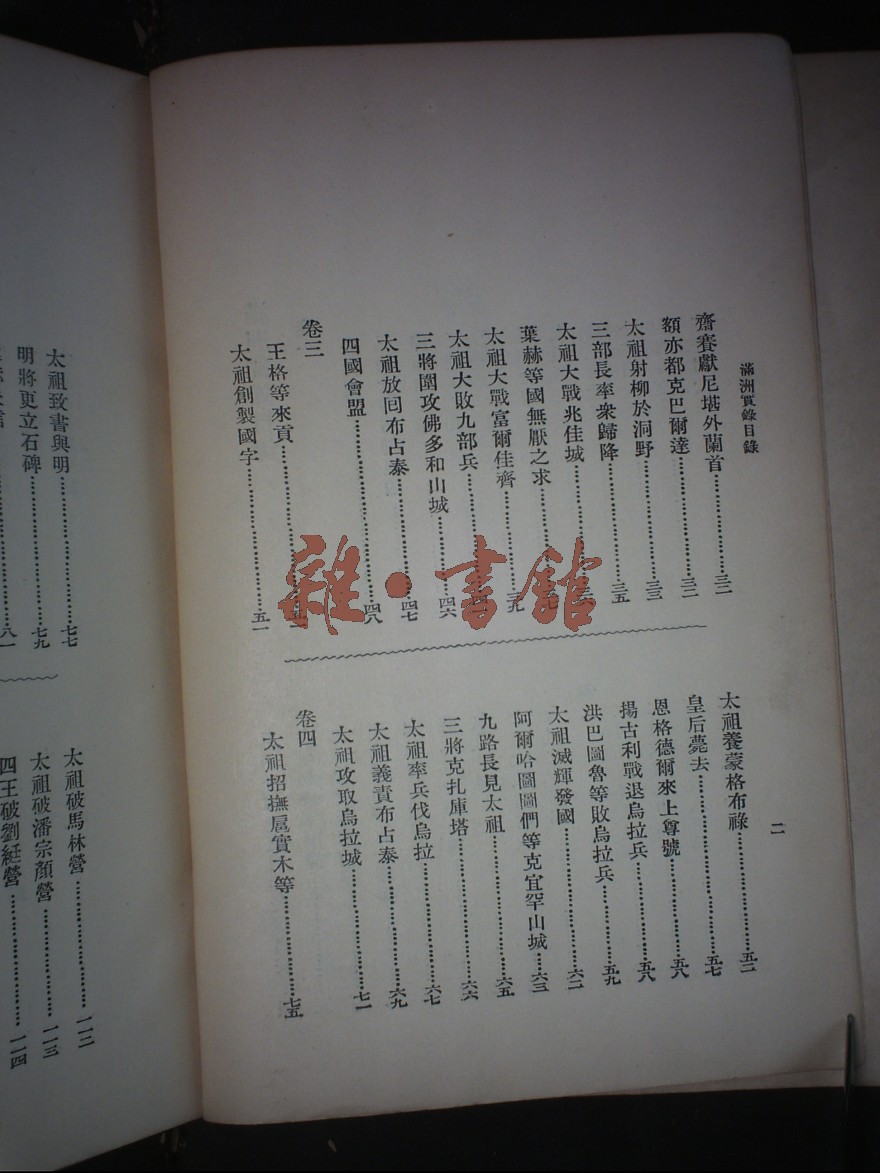 滿洲實錄目錄
二
齋賽獻尼堪外蘭首⋯⋯三二
額亦都克巴爾達⋯⋯三二
太祖射柳於洞野⋯⋯三三
三部長率衆歸降⋯⋯三五
太祖大戰兆佳城⋯⋯
葉赫等國無厭之求⋯⋯
太祖大戰富爾佳齊⋯⋯三九
太祖大敗九部兵⋯⋯
三將圍攻佛多和山城⋯⋯四六
太祖放回布占泰⋯⋯四七
四國會盟⋯⋯四八
卷三
王格等來貢⋯⋯
太祖創製國字⋯⋯五一
太祖養蒙格布祿⋯⋯五二
皇后薨去⋯⋯五七
恩格德爾來上尊號⋯⋯五八
揚古利戰退烏拉兵⋯⋯五八
洪巴圖魯等敗烏拉兵⋯⋯五九
太祖滅輝發國⋯⋯六二
阿爾哈圖圖們等克宜罕山城⋯⋯六三
九路長見太祖⋯⋯六五
三將克扎庫塔⋯⋯六六
太祖率兵伐烏拉⋯⋯六七
太祖義責布占泰⋯⋯六九
太祖攻取烏拉城⋯⋯七一
卷四
太祖招撫扈實木等⋯⋯七五
太祖致書與明⋯⋯七七
明將更立石碑⋯⋯七九
八一
太祖破馬林營⋯⋯一一二
太祖破潘宗顏營⋯⋯一一三
四王破劉綎營⋯⋯一一四
雜·書館